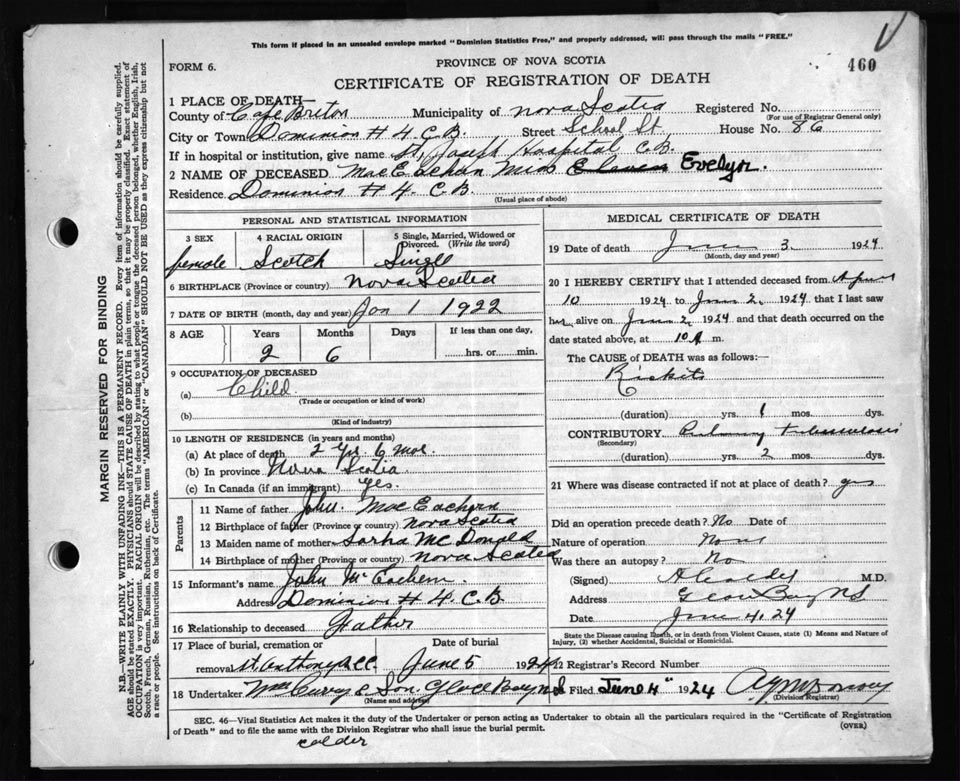 This form if placed in an unsealed envelope marked "Dominion Statistics Free," and properly addressed, will pass through the mails "FREE."
PROVINCE OF NOVA SCOTIA
FORM 6.
460
CERTIFICATE OF REGISTRATION OF DEATH
1 PLACE OF DEATH—
County of Cape Breton Municipality of Nova Scotia Registered No.
(For use of Registrar General only)
City or Town Dominion # 4 C.B. Street School St. House No. 86
If in hospital or institution, give name St Joseph Hospital C.B.
2 NAME OF DECEASED MacEachan Miss Evelyn.
Residence Dominion # 4. C.B.
(Usual place of abode)
PERSONAL AND STATISTICAL INFORMATION
3 SEX 4 RACIAL ORIGIN 5 Single, Married, Widowed or Divorced. (Write the word)
female Scotch Singel
6 BIRTHPLACE (Province or country) Nova Scotia
7 DATE OF BIRTH (month, day and year) Jan 1 1922
8 AGE Years Months Days If less than one day,
2 6 hrs. or min.
9 OCCUPATION OF DECEASED
(a) Child
(Trade or occupation or kind of work)
(b)
(Kind of industry)
10 LENGTH OF RESIDENCE (in years and months)
(a) At place of death 2 yr. 6 mos.
(b) In province Nova Scotia
(c) In Canada (if an immigrant) yes.
Parents
11 Name of father John. MacEachern
12 Birthplace of father (Province or country) Nova Scotia
13 Maiden name of mother Sarha McDonald
14 Birthplace of mother (Province or country) Nova Scotia
15 Informant's name John McEachern.
Address Dominion # 4. C.B.
16 Relationship to deceased Father
17 Place of burial, cremation or Date of burial
removal St. Anthony June 5 1924
18 Undertaker & Son. Glace Bay N.S
(Name and address)
MEDICAL CERTIFICATE OF DEATH
19 Date of death June 3. 1924
(Month, day and year)
20 I HEREBY CERTIFY that I attended deceased from April
10 1924 to June 2. 1924 that I last saw
her alive on June 2, 1924 and that death occurred on the
date stated above, at 10 A m.
The CAUSE of DEATH was as follows:—
Rickits
(duration) yrs. 1 mos. dys.
CONTRIBUTORY Pulmonary tuberculosis
(Secondary)
(duration) yrs. 2 mos. dys.
21 Where was disease contracted if not at place of death? yes
Did an operation precede death? No Date of
Nature of operation None
Was there an autopsy? No
(Signed) M.D.
Address Glace Bay NS
Date June 4. 24
State the Disease causing Death, or in death from Violent Causes, state (1) Means and Nature of
Injury, (2) whether Accidental, Suicidal or Homicidal.
22 Registrar's Record Number
Filed June 4" 1924
(Division Registrar)
SEC. 46—Vital Statistics Act makes it the duty of the Undertaker or person acting as Undertaker to obtain all the particulars required in the "Certificate of Registration
of Death" and to file the same with the Division Registrar who shall issue the burial permit.
(OVER)
calder
MARGIN RESERVED FOR BINDING
N.B.—WRITE PLAINLY WITH UNFADING INK—THIS IS A PERMANENT RECORD. Every item of information should be carefully supplied.
AGE should be stated EXACTLY. PHYSICIANS should STATE CAUSE OF DEATH in plain terms, so that it may be properly classified. Exact statement of
OCCUPATION is very important. RACIAL ORIGIN will be described by stating to what people or tongue the deceased person belonged, whether English, Irish,
Scotch, French, German, Russian, Ruthenian, etc. The terms "AMERICAN" or "CANADIAN" SHOULD NOT BE USED as they express citizenship but not
a race or people. See instructions on back of Certificate.